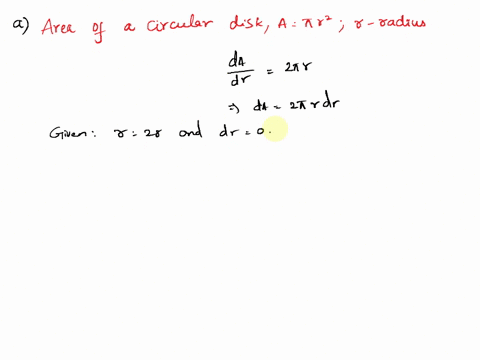 a) Area of a circular disk, A = πr² ; r - radius
dA/dr = 2πr
⇒ dA = 2πr dr
Given: r = 28 and dr = 0.